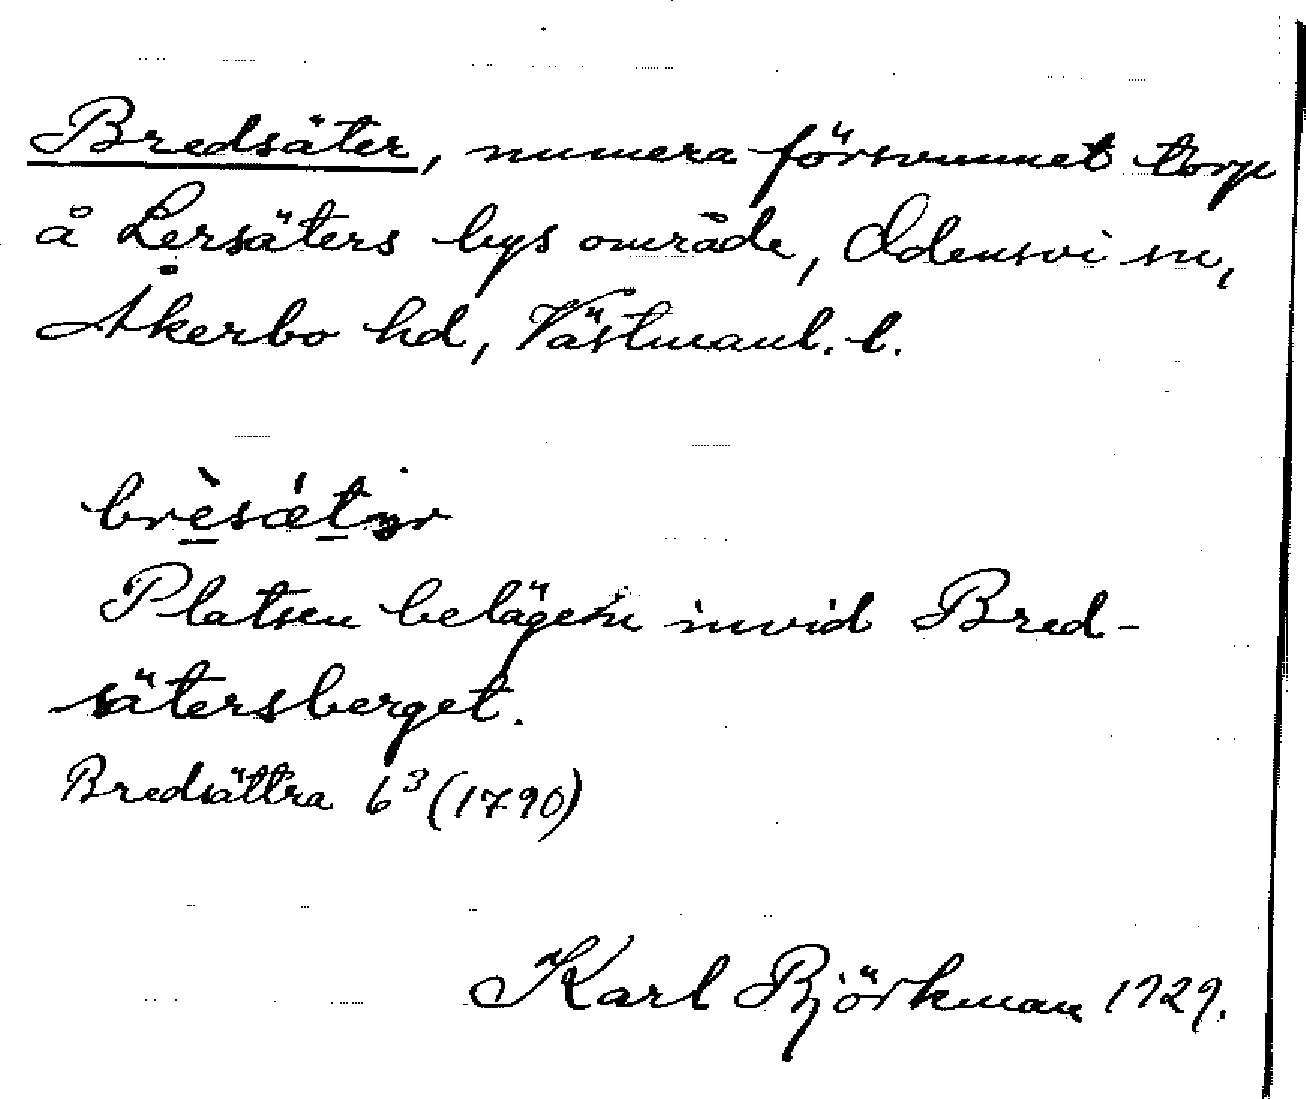 Bredsäter, numera försvunnet torp
å Lersäters bys område, Odensvi sn,
Åkerbo hd, Västmanl. l.
brèsǽtər
Platsen belägen invid Bred-
sätersberget.
Bredsättra 6³ (1790)
Karl Björkman 1929.